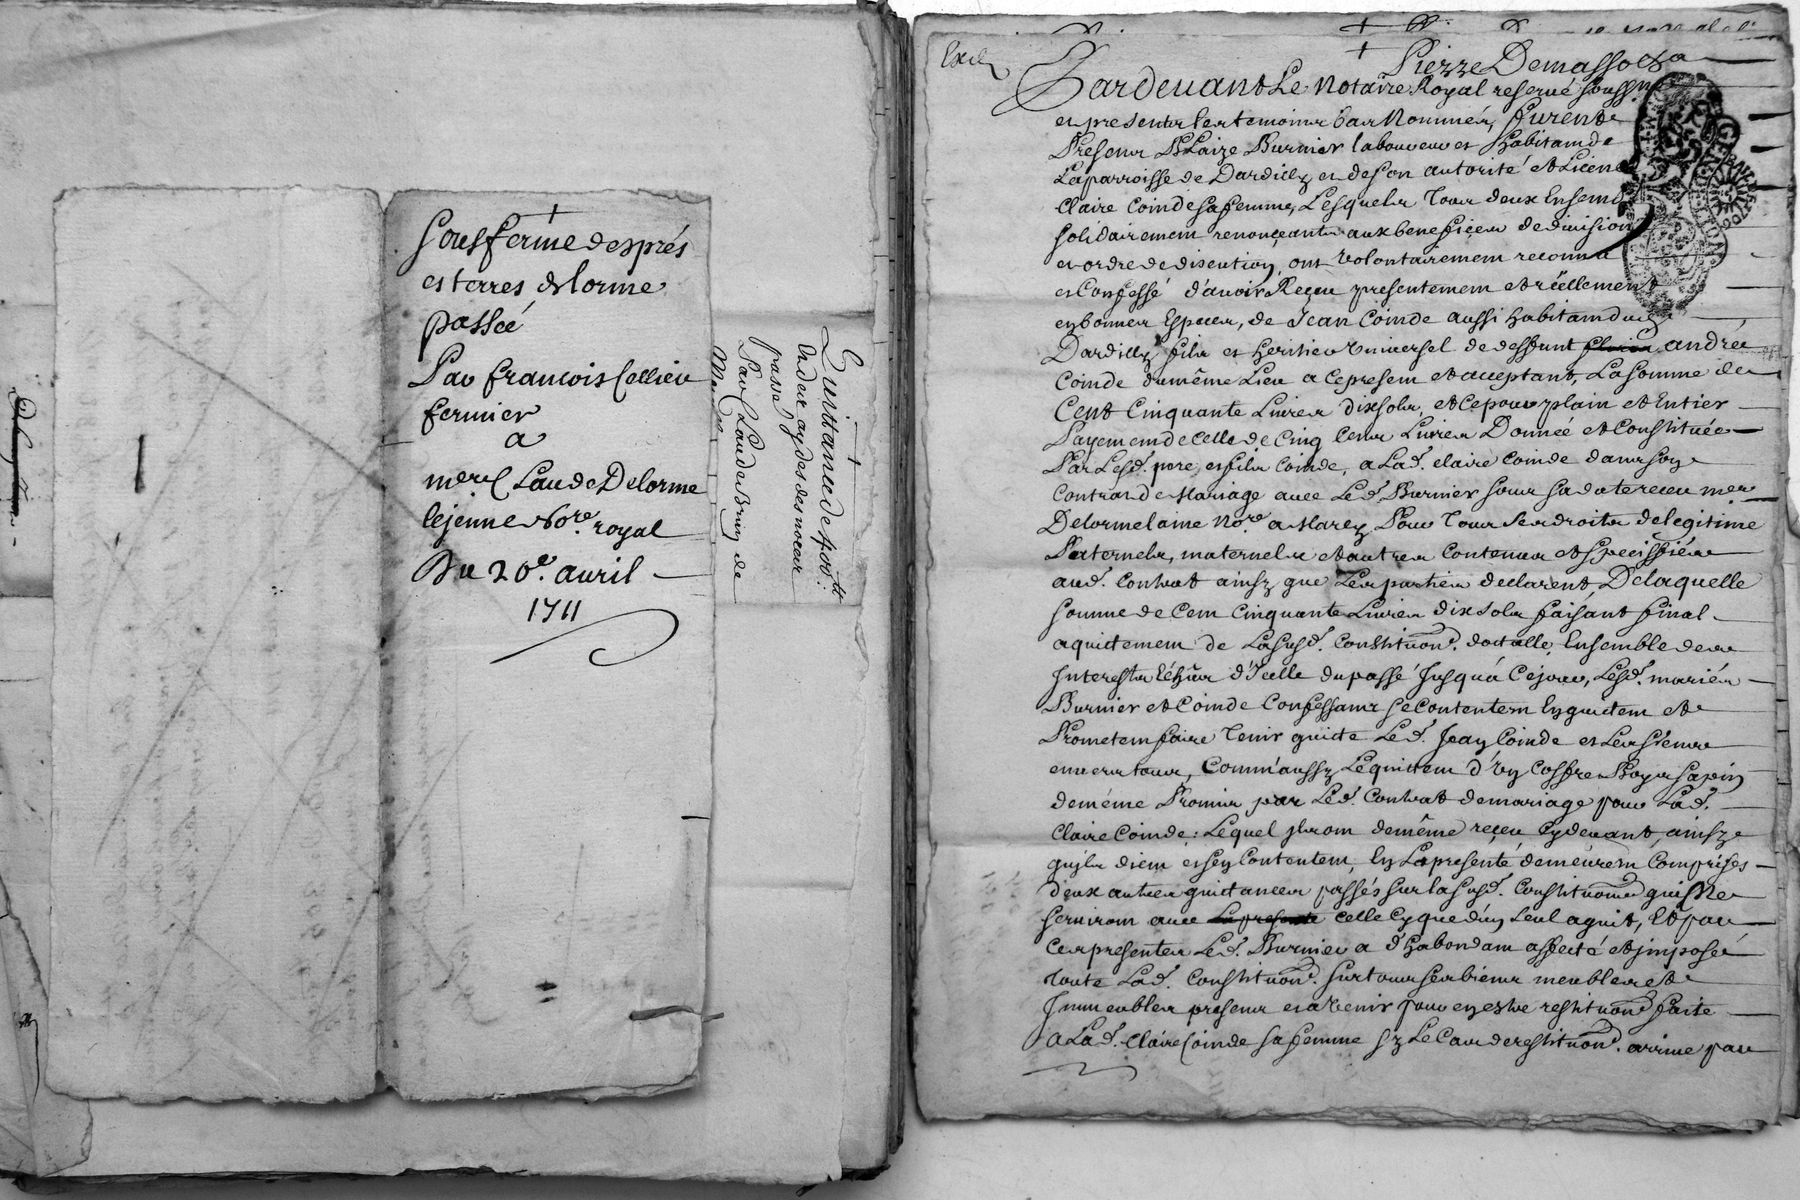 Sousferme després
et terres delorme
passée
Par francois Cellier
fermier
a
me Claude Delorme
lejeune no.re royal
Du 20e. auril
1711
Quittance de
passé
Par Claude Brun de
Pierre Demasso &a
Pardeuant Le Notaire Royal reserué soussigné
et presents les temoins bas Nommés, furent
Presens Blaize Burnier laboureur et habitant de
La parroisse de Dardilly et de son autorité et Licence
Claire Coinde sa femme, Lesquels Tous deux Ensemble
solidairement renonçants aux benefices de diuision
et ordre de discution, ont Volontairement reconnu
et Confessé d'auoir Reçeu presentement et rëellement
en bonnes Especes, de Jean Coinde aussi habitant dud.
Dardilly fils et heritier Vniuersel de deffunt andré
Coinde du même Lieu a ce present et acceptant, La somme de
Cent Cinquante Liures dix sols, et ce pour plain et Entier
Payement de celle de Cinq Cens Liures Donnée et Constituée
Par Lesd. pere et fils Coinde, a Lad. claire Coinde dans son
Contrat de Mariage auec Led. Burnier sous sa date reçeu me
Delorme laine No.re a Marcy Pour Tous ses droits de legitime
Paternels, maternels et autres Contenus et Speciffiés
aud. Contrat ainsy que Les parties declarent, De laquelle
somme de Cent Cinquante Liures dix sols faisant final
aquittement de La susd. Constituon. dottalle, Ensemble des
Interests Echûs d'Icelle du passé Jusqu'à Ce jour, Lesd. mariés
Burnier et Coinde Confessans se Contentent En quittent et
Promettent faire Tenir quitte Led. Jean Coinde et Les siens
enuers tous, Comm'aussy Le quittent d'Vn Coffre Boys sapin
de même Promis par Led. Contrat de mariage pour Lad.
Claire Coinde: Lequel ils ont de même reçeu Cy deuant, ainsy
qu'ils dient et s'en Contentent, En La presente demeurent Comprises
deux autres quittances passés sur la susd. Constituon qui Ne
seruiront auec la presente celle Cy que d'un seul aquit, Et par
Ces presentes Led. Burnier a d'habondant affecté et imposé
toute Lad. Constituon. sur tous ses biens meubles et
Immeubles presens et a Venir pour en estre restituon faite
a Lad. Claire Coinde sa femme sy Le Cas de restituon. arriue par